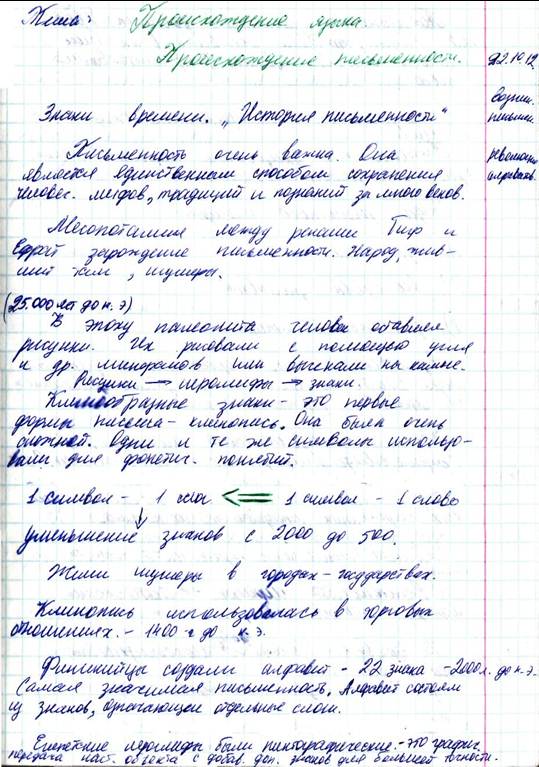 Тема: Происхождение языка
Происхождение письменности.
22.10.12
Знаки времени. „История письменности"
письмен.
Письменность очень важна. Она
является единственным способом сохранения
человес. мифов, традиций и познаний за много веков.
Месопотамия между реками Тигр и
Ефрат зарождение письменности. Народ, жив-
ший там, шумеры.
(25.000 лет до н. э)
В эпоху палеолита человек оставлял
рисунки. Их рисовали с помощью угля
и др. минералов или высекали на камне.
Рисунки → иероглифы → знаки.
Клинообразные знаки - это первые
формы письма - клинопись. Она была очень
сложной. Одни и те же символы использо-
вали для фонетич. понятий.
1 символ - 1 слог ⇐ 1 символ - 1 слово
↓
уменьшение знаков с 2000 до 500.
Жили шумеры в городах-государствах.
Клинопись использовалась в торговых
отношениях. - 1400 г до н. э.
Финикийцы создали алфавит - 22 знака - 2000 л. до н. э.
Самая значимая письменность. Алфавит состоял
из знаков, означающие отдельные слоги.
Египетские иероглифы были пиктографические. - это графич.
передача наст. объекта с добав. доп. знаков для большей точности.